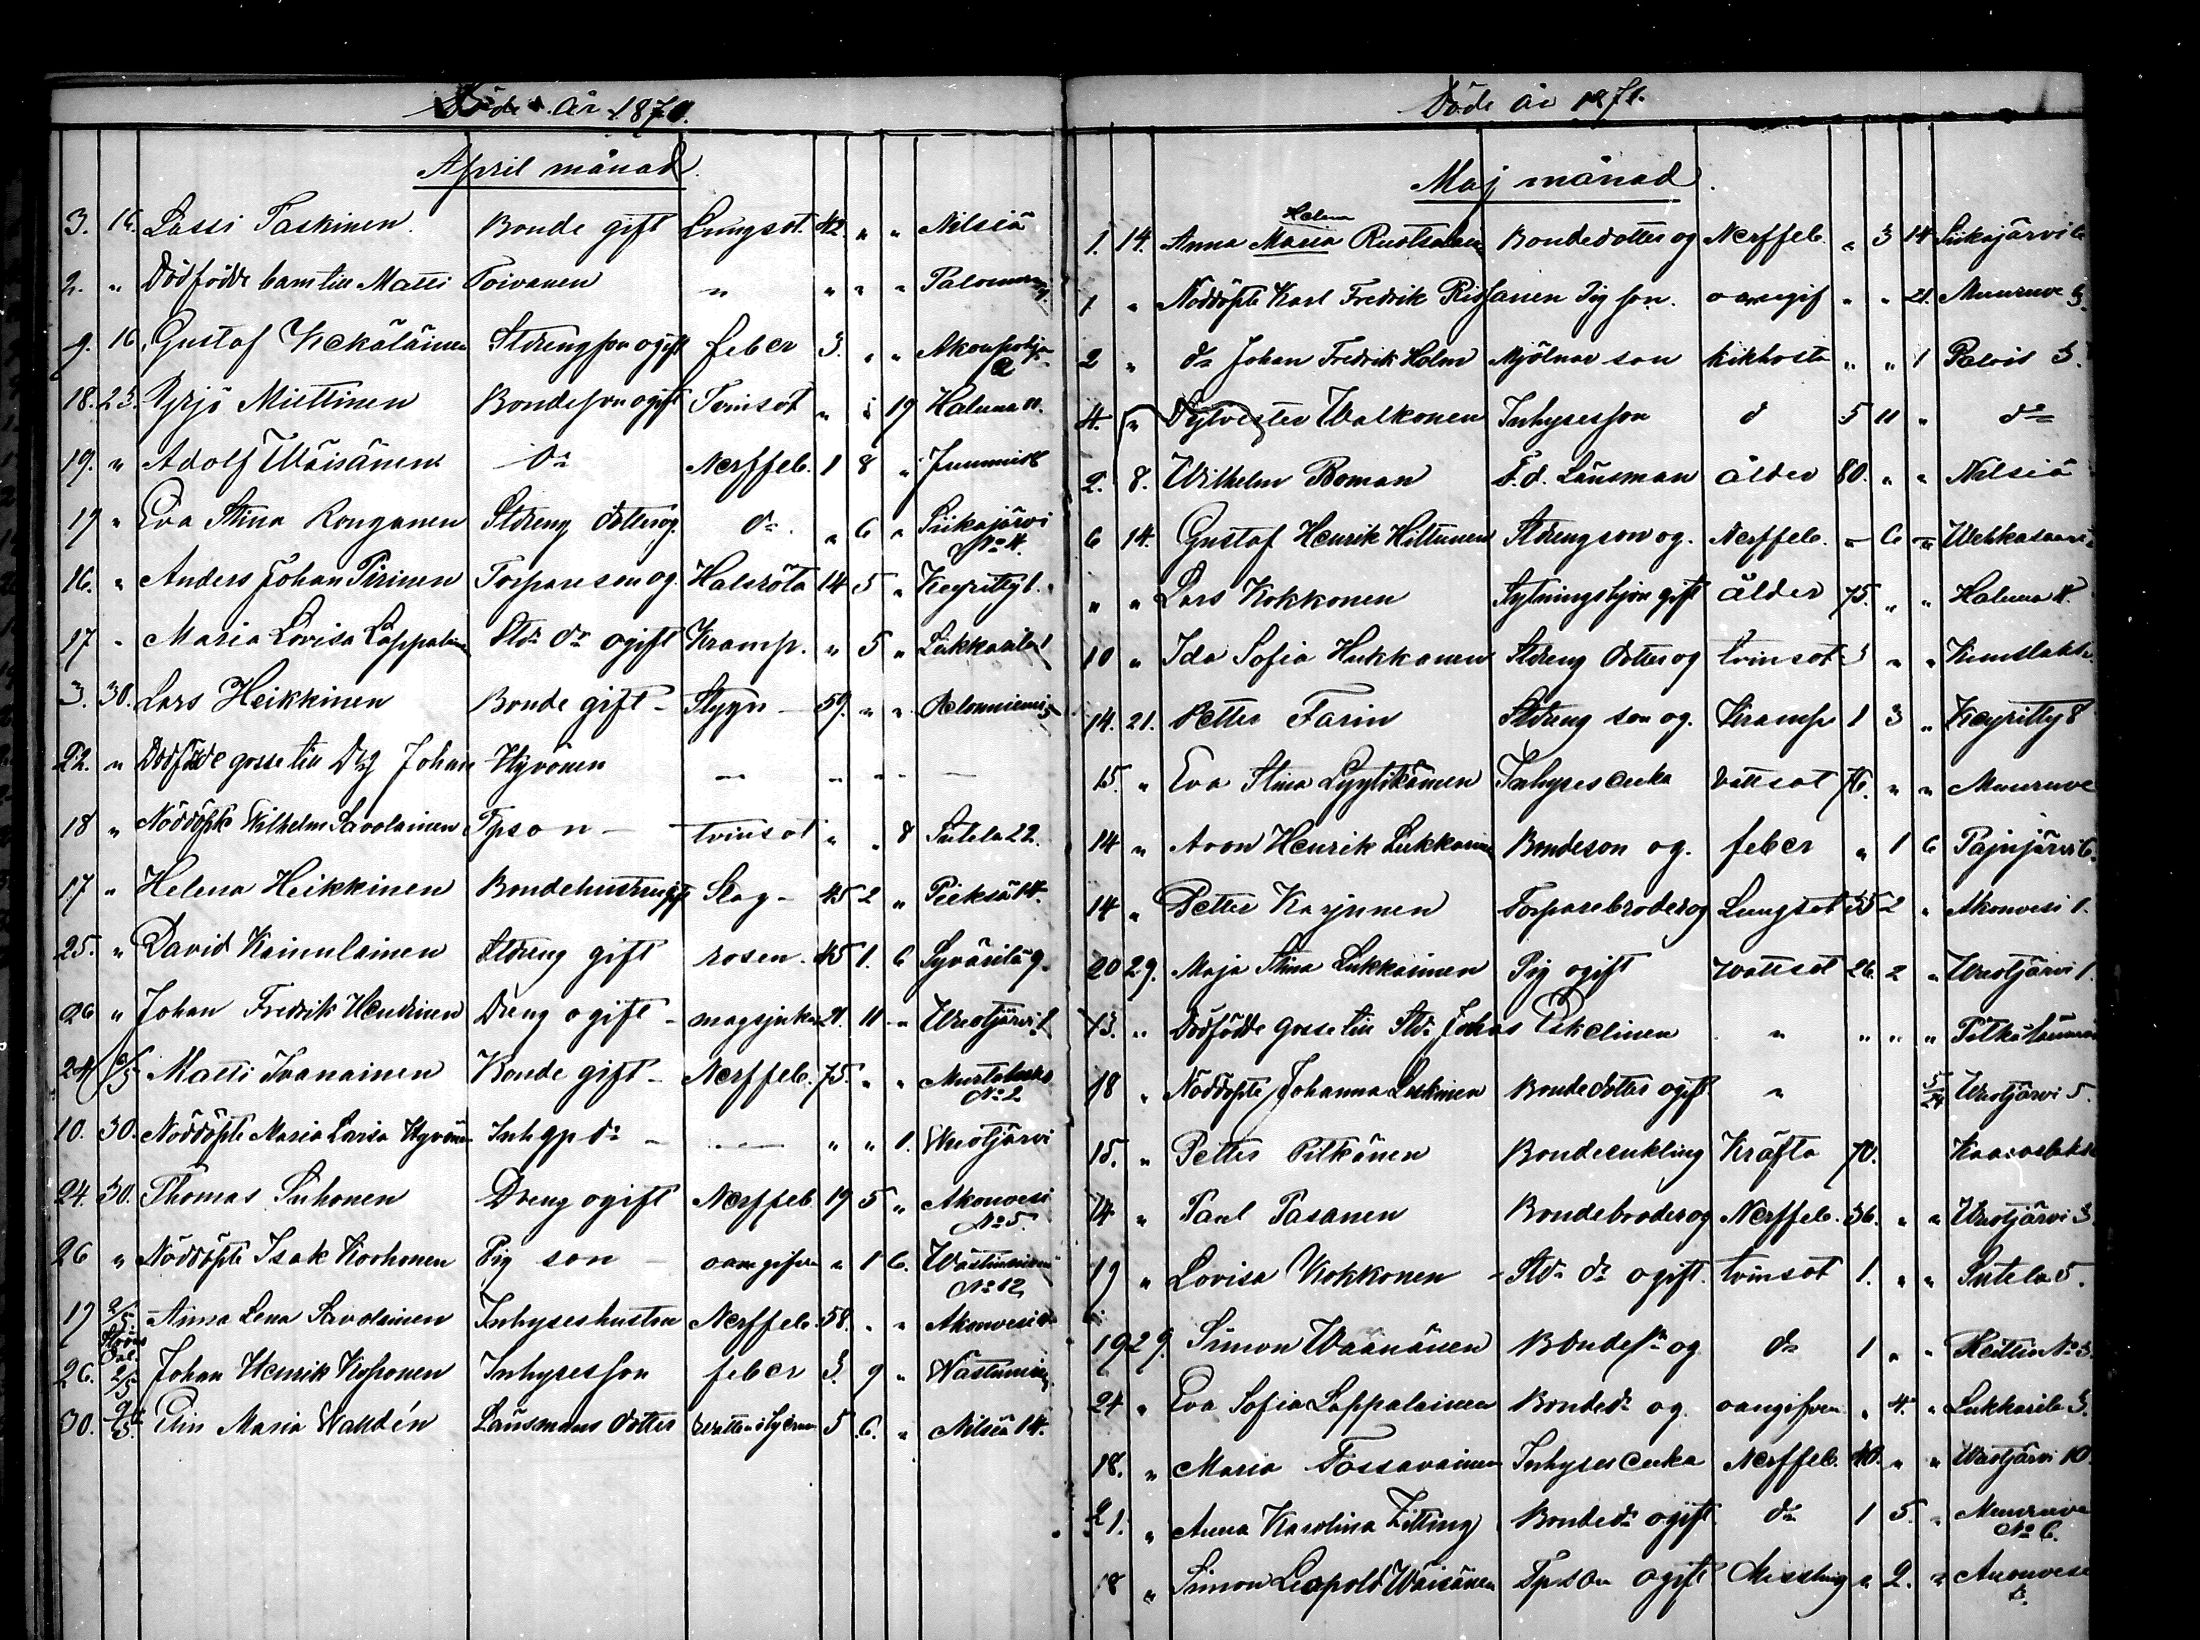 Döde år 1871.
April månad.
3. 16. Lassi Taskinen. Bonde gift Lungsot. 42. " " Nilsiä
2. " Dödfödde barn till Matti Toivanen " " " "
9. 16. Gustaf Kekäläinen Stdrengson ogift feber 3. " "
18. 23. Yrjö Miettinen Bondeson ogift Tvinsot " " 19 Haluna 11.
19. " Adolf Wäisänen do Nerffeb. 1 8 "
19 " Eva Stina Ronganen Stdreng dotter og. do. " 6 " Siikajärvi
No 4.
16. " Anders Johan Pirinen Torpare son og. Halsröta 14 5 " Keyritty 1.
17 " Maria Lovisa Lappalainen Std. do ogift Kramp. " 5 " Lukkarila 1
3. 30. Lars Heikkinen Bonde gift - Styng - 59. " " Pelonniemi 5
22. " Dödfödde gosse till Drg Johan Hyvönen — — — — —
18 " Nöddöpte Wilhelm Savolainen Tpson - tvinsot " " 8 Sutela 22.
17 " Helena Heikkinen Bondehustru gift Slag - 45 2 " Pieksä 14.
25. " David Kainulainen Stdreng gift rosen. 45 1. 6 Syvärilä 9.
26 " Johan Fredrik Hendrinen Dreng ogift - magsjuka 21. 11 " Wuotjärvi 1
24 6/5 Matti Ivanainen Bonde gift - Nerffeb. 75. " "
No 2
10. 30. Nöddöpte Maria Larsa Hyvönen Inhyp do - — " " 1. Wuotjärvi
24. 30. Thomas Suhonen Dreng ogift Nerffeb 19 5 " Akonvesi
No 5.
26 " Nöddöpte Isak Korhonen Pig son - oangifven " 1 6. Wästinniemi
No 12
19 2/5 Anna Lena Savolainen Inhyseshustru Nerffeb. 58. " " Akonvesi
26. 2/5 Johan Henrik Koponen Inhysesson feber 3. 9 " Wästinniemi
30. 9/5. Elin Maria Walldén Länsmans dotter 5 6. " Nilsiä 14.
Döde år 1871.
Maj månad.
Helena
1. 14. Anna Maria Ruotsalainen Bondedotter og Nerffeb. " 3 14 Siikajärvi 6
1 " Nöddöpte Karl Fredrik Rissanen Pig son. oangif " " 21. Muuruve 3.
2 " do Johan Fredrik Holm Mjölnar son kikhosta " " 1 Palois 3.
4. " Sylvester Walkonen Inhysesson d 5 11 " do
2. 8. Wilhelm Roman F.d. Länsman ålder 80. " " Nilsiä
6 14. Gustaf Henrik Hiltunen Stdrengson og. Nerffeb. " 6 " Wehkasaari
" " Lars Kokkonen Sytningshjon gift ålder 75. " " Haluna 11.
10 " Ida Sofia Hukkanen Stdreng dotter og tvinsot 3 " "
14. 21. Petter Farin Stdreng son og. Kramp 1 3 " Keyritty 8
15. " Eva Stina Lyytikäinen Inhyses enka Vattsot 76. " " Muuruve
14 " Aron Henrik Lukkarinen Bondeson og. feber " 1 6 Pajujärvi 6.
14 " Petter Karjunen Torparebroder og Lungsot 55 2 " Akonvesi 1.
20 29. Maja Stina Lukkainen Pig ogift Wattsot 26. 2 " Wuotjärvi 1.
13. " Dödfödde gosse till Std. Johan Eskelinen " " " "
18 " Nöddöpte Johanna Leskinen Bondedotter ogift " 5/24 Wuotjärvi 5.
15. " Petter Pitkänen Bondeenkling Kräfta 70.
14 " Paul Pasanen Bondebroder og Nerffeb. 36. " " Wuotjärvi 3
19 " Lovisa Kokkonen - Std. do ogift. tvinsot 1. " " Sutela 5.
19 29. Simon Wäänänen Bonde sn og do 1 " " Reittiö No 3.
24 " Eva Sofia Lappalainen Bonde d. og. oangifven " 4. " Lukkarila 3.
18. " Maria Tossavainen Inhyses enka Nerffeb. 40. " " Wuotjärvi 10.
21. " Anna Karolina Zitting Bonde d. ogift. do 1 5. " Muuruve
No 6.
18 " Simon Leopold Wäisänen Tpson ogift Messling " 2. " Akonvesi